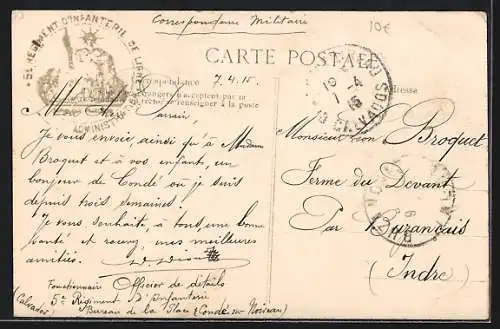 Correspondance Militaire
10€
5E REGIMENT D'INFANTERIE DE LIGNE
ADMINISTRATION
CARTE POSTALE
Correspondance
7.4.15.
étrangers n'acceptent pas
renseigner à la poste
adresse
19 -4
15
CALVADOS
Je vous envoie, ainsi qu'à Madame
Broquet et à vos enfants, un
bonjour de Condé où je suis
depuis trois semaines.
Je vous souhaite, à tous une bonne
santé et recevez mes meilleures
amitiés.
Monsieur Léon Broquet
Ferme du Devant
Par Buzançais
(Indre)
Fonctionnaire Officier de détails
5e Régiment d'Infanterie
Bureau de la Place, Condé sur Noireau
(Calvados)